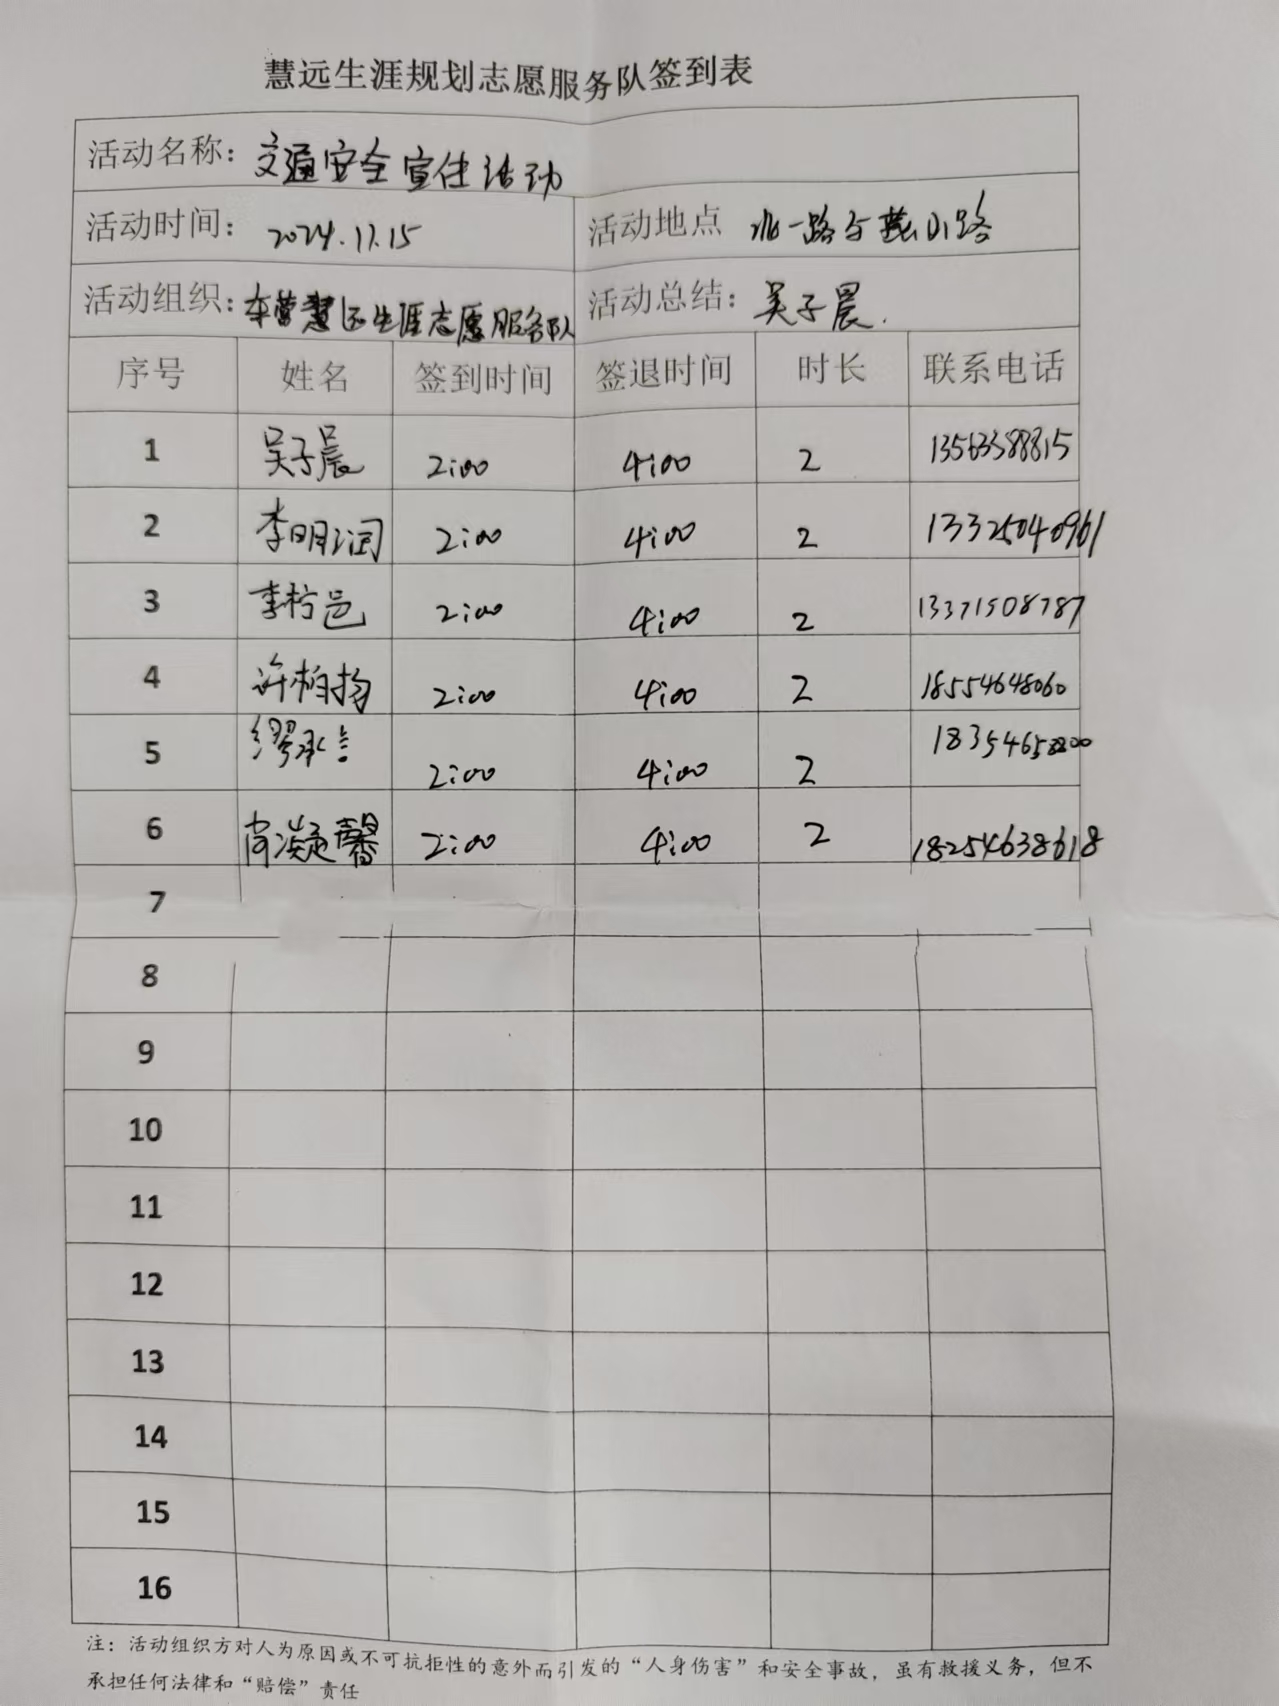 慧远生涯规划志愿服务队签到表
活动名称：交通安全宣传活动
活动时间：2024.11.15 活动地点 北一路与燕山路
活动组织：东营慧远生涯志愿服务队 活动总结：吴子晨.
序号 姓名 签到时间 签退时间 时长 联系电话
1 吴子晨 2:00 4:00 2 13563388815
2 李明润 2:00 4:00 2 13325040961
3 李柠邑 2:00 4:00 2 13371508787
4 许柏扬 2:00 4:00 2 18554648060
5 缪承言 2:00 4:00 2
6 尚凝馨 2:00 4:00 2 18254638618
7
8
9
10
11
12
13
14
15
16
注：活动组织方对人为原因或不可抗拒性的意外而引发的“人身伤害”和安全事故，虽有救援义务，但不
承担任何法律和“赔偿”责任